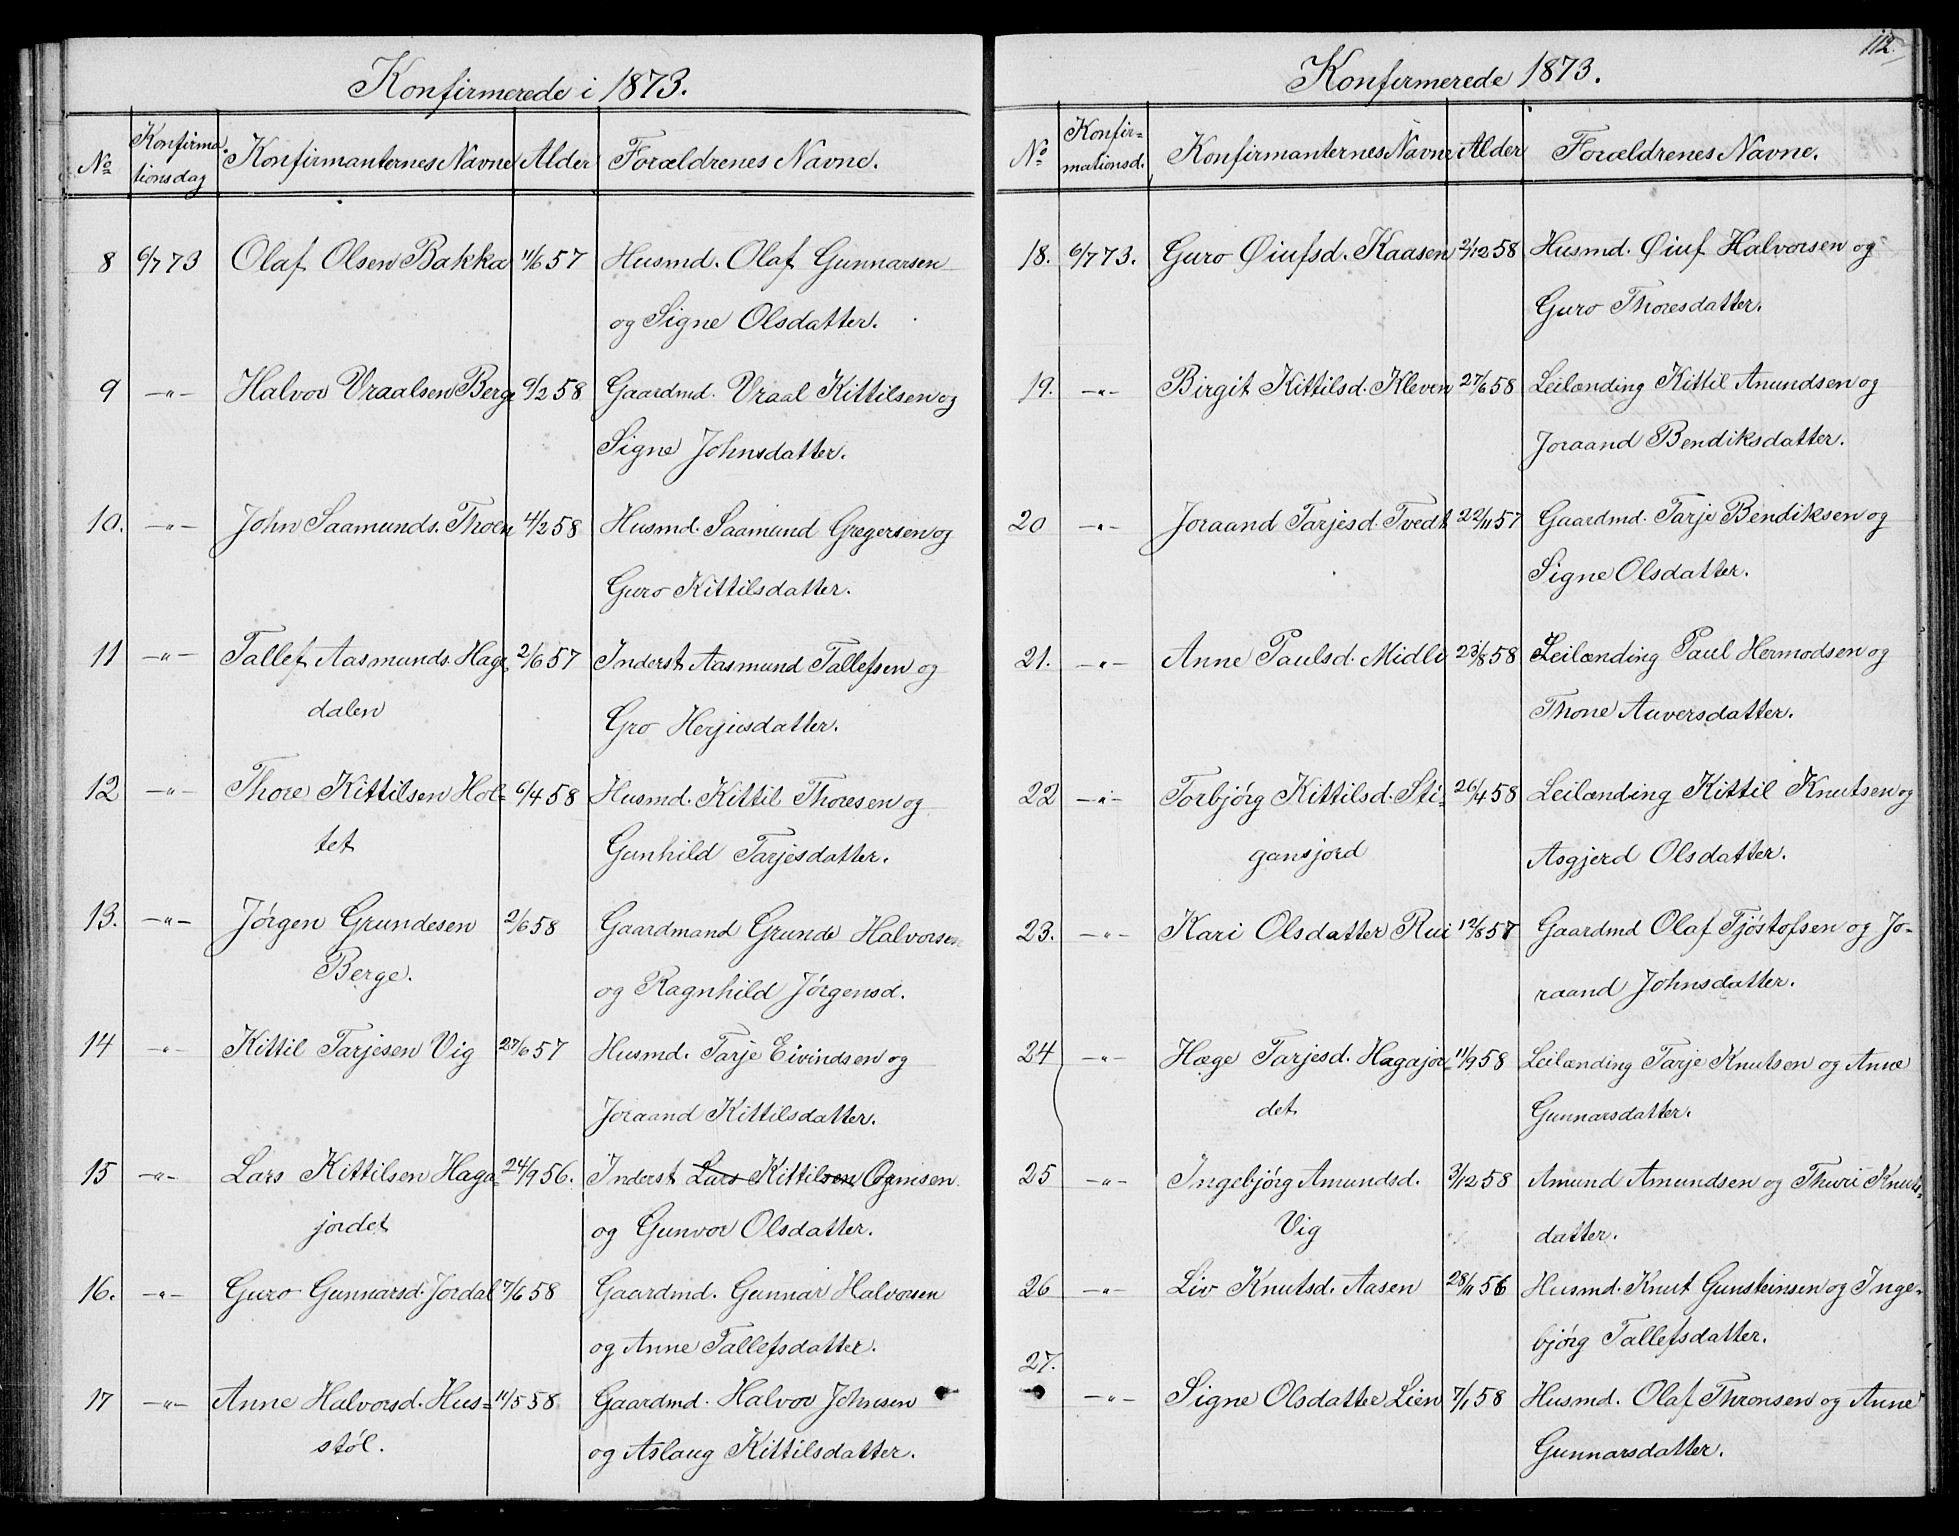 Konfirmerede i 1873.
No Konfirma- tionsdag Konfirmanternes Navne Alder Forældrenes Navne.
8 6/7 73 Olaf Olsen Bakka 11/6 57 Husmd. Olaf Gunnarsen
og Signe Olsdatter.
9 -"- Halvor Vraalsen Berge 9/2 58 Gaardmd. Vraal Kittilsen og
Signe Johnsdatter.
10. -"- John Saamunds. Thoen 4/2 58 Husmd. Saamund Gregersen og
Guro Kittilsdatter.
11 -"- Tallef Aasmunds. Hage- 2/6 57 Inderst Aasmund Tallefsen og
dalen Gro Herjusdatter.
12 -"- Thore Kittilsen Hol= 6/4 58 Husmd. Kittil Thoresen og
tet Gunhild Tarjesdatter.
13. -"- Jørgen Grundesen 2/6 58 Gaardmand Grunde Halvorsen
Berge. og Ragnhild Jørgensd.
14 -"- Kittil Tarjesen Vig 27/6 57 Husmd. Tarje Eivindsen og
Joraand Kittilsdatter.
15 -"- Lars Kittilsen Haga- 24/9 56. Inderst Lars Kittilsen Ognisen
jordet og Gunvor Olsdatter.
16. -"- Guro Gunnarsd. Jordal 7/6 58 Gaardmd. Gunnar Halvorsen
og Anne Tallefsdatter.
17 -"- Anne Halvorsd. Hus= 11/5 58 Gaardmd. Halvor Johnsen
støl. og Aslaug Kittilsdatter.
112.
Konfirmerede 1873.
No Konfir= mationsd. Konfirmanternes Navne Alder Forældrenes Navne.
18. 6/7 73. Guro Øiufsd. Kaasen 2/12 58 Husmd. Øiuf Halvorsen og
Guro Thoresdatter.
19. -"- Birgit Kittilsd. Kleven 27/6 58 Leilænding Kittil Anundsen og
Joraand Bendiksdatter.
20 -"- Joraand Tarjesd. Tvedt 22/11 57 Gaardmd. Tarje Bendiksen og
Signe Olsdatter.
21. -"- Anne Paulsd. Midli 23/8 58 Leilænding Paul Hermodsen og
Thone Auversdatter.
22 -"- Torbjørg Kittilsd. Sti- 26/4 58 Leilænding Kittil Knutsen og
gansjord Asgjerd Olsdatter.
23. -"- Kari Olsdatter Rui 12/8 57 Gaardmd Olaf Tjøstofsen og Jo-
raand Johnsdatter.
24 -"- Hæge Tarjesd. Hagajor- 11/9 58 Leilænding Tarje Knutsen og Anne
det Gunnarsdatter.
25 -"- Ingebjørg Amundsd. 3/12 58 Amund Amundsen og Thuri Knuts-
Vig datter.
26 -"- Liv Knutsd. Aasen 28/11 56 Husmd. Knut Gunsteinsen og Inge-
bjørg Tallefsdatter.
27. -"- Signe Olsdatter Lien 7/1 58 Husmd. Olaf Thronsen og Anne
Gunnarsdatter.